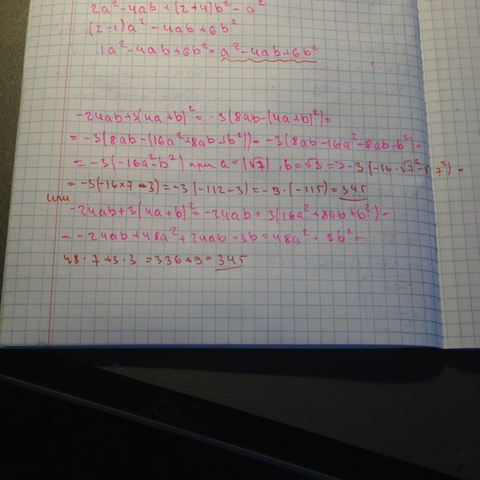 2a²-4ab+(2+4)b²-a²
(2-1)a²-4ab+6b²
1a²-4ab+6b²=a²-4ab+6b²
-24ab+3(4a+b)²=-3(8ab-(4a+b)²)=
=-3(8ab-(16a²+8ab+b²))=-3(8ab-16a²-8ab-b²)=
=-3(-16a²-b²) при a=(√7), b=√3=>-3·(-16·√7²-
=-3(-16×7-3)=-3(-112-3)=-3·(-115)=345
или
-24ab+3(4a+b)²=-24ab+3(16a²+8ab+b²)=
=-24ab+48a²+24ab+3b=48a²+3b²=
48·7+3·3=336+9=345